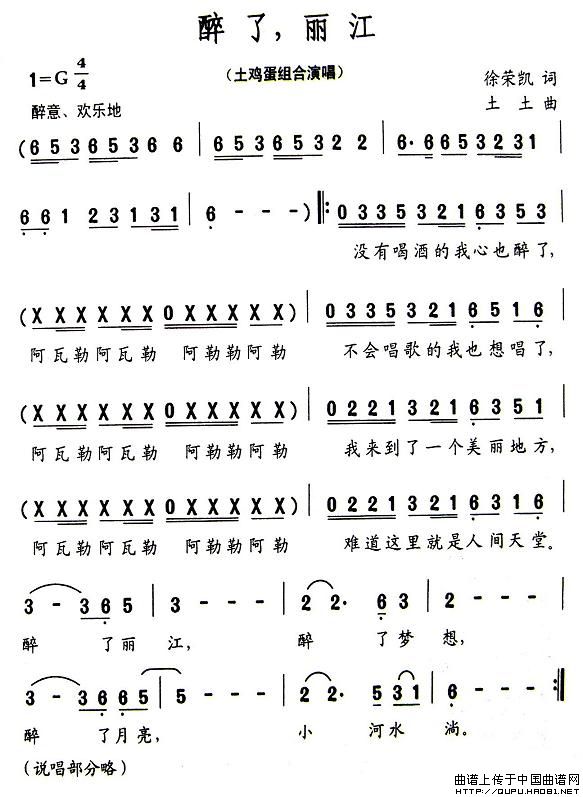 醉了，丽江
1=G 4/4
（土鸡蛋组合演唱）
徐荣凯 词
醉意、欢乐地
土 土 曲
(6 5 3 6 5 3 6 6 | 6 5 3 6 5 3 2 2 | 6· 6 6 5 3 2 3 1 |
6 6 1 2 3 1 3 1 | 6 - - - ) |: 0 3 3 5 3 2 1 6 3 5 3 |
没有喝酒的我心也醉了，
(X X X X X X 0 X X X X X) | 0 3 3 5 3 2 1 6 5 1 6 |
阿瓦勒阿瓦勒 阿勒勒阿勒 不会唱歌的我也想唱了，
(X X X X X X 0 X X X X X) | 0 2 2 1 3 2 1 6 3 5 1 |
阿瓦勒阿瓦勒 阿勒勒阿勒 我来到了一个美丽地方，
(X X X X X X 0 X X X X X) | 0 2 2 1 3 2 1 6 3 1 6 |
阿瓦勒阿瓦勒 阿勒勒阿勒 难道这里就是人间天堂。
3 - 3 6 5 | 3 - - - | 2 2· 6 3 | 2 - - - |
醉 了丽 江， 醉 了梦 想，
3 - 3 6 6 5 | 5 - - - | 2 2· 5 3 1 | 6 - - - :|
醉 了月亮， 小 河水 淌。
（说唱部分略）
曲谱上传于中国曲谱网
HTTP://QUPU.HAO81.NET